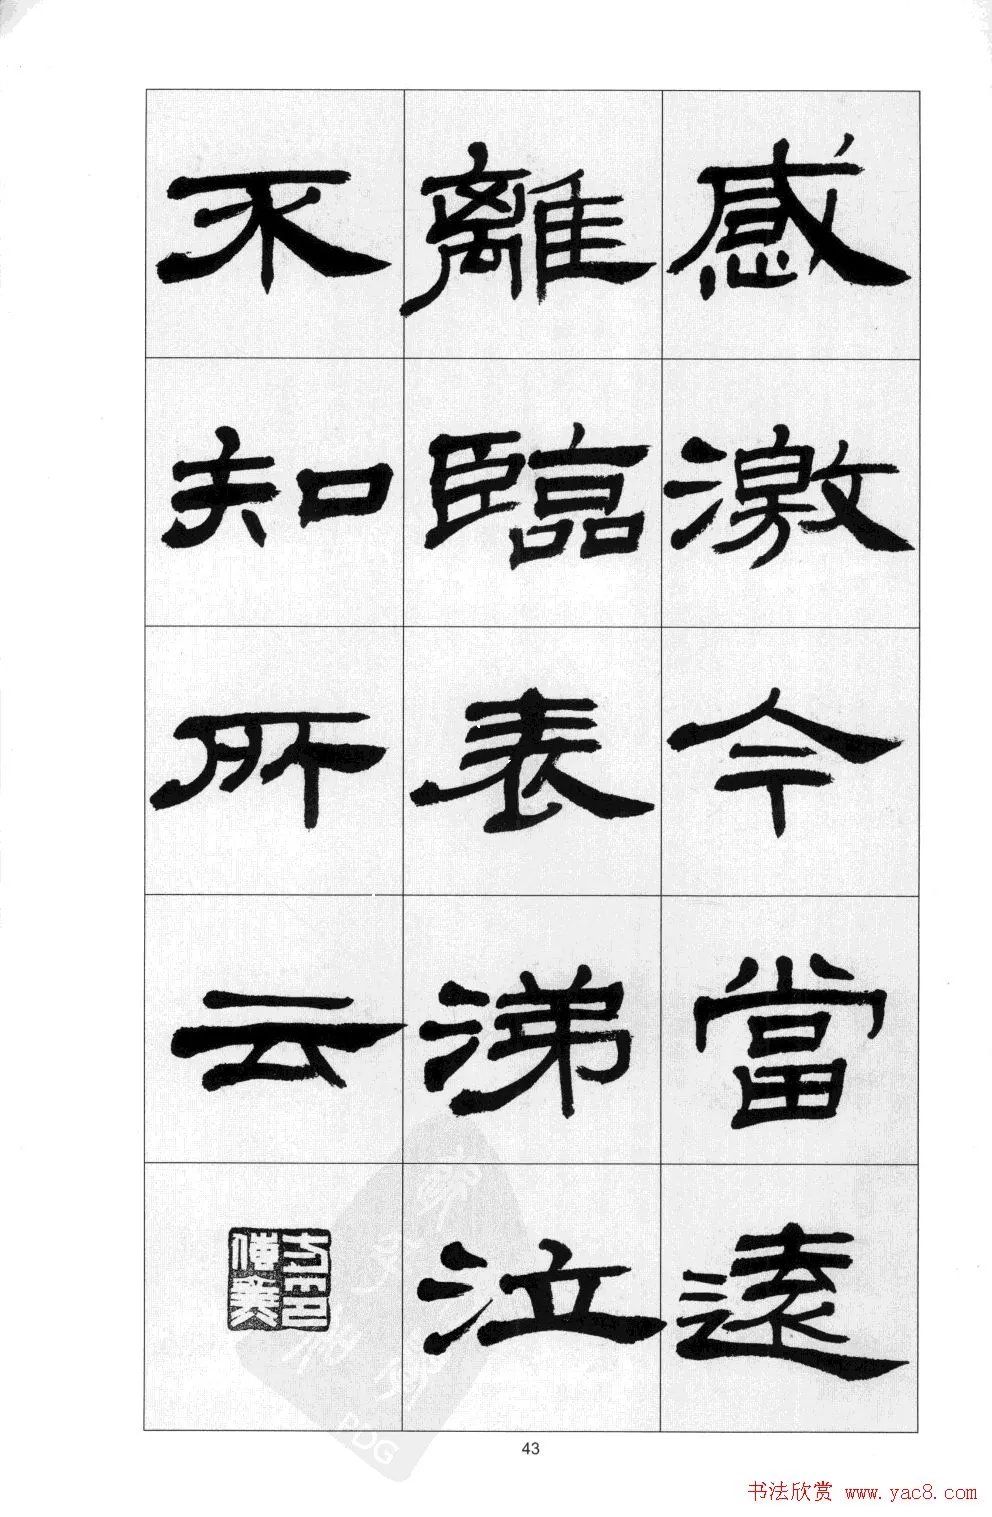 感激今當遠
離臨表涕泣
不知所云
43
书法欣赏 www.yac8.com